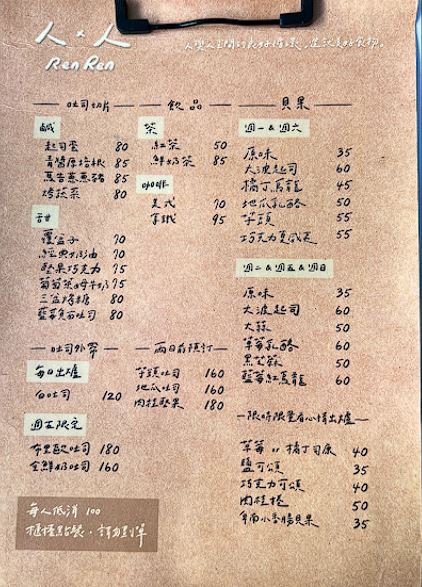 人×人
Ren Ren
人與人之間的良好循環,
吐司切片
鹹
起司蛋 80
青醬厚培根 85
85
烤蔬菜 80
甜
覆盆子 70
經典奶油 70
堅果巧克力 75
75
三盆烤糖 80
藍莓魚苗吐司 80
吐司外帶
每日出爐
白吐司 120
週五限定
布里歐吐司 180
全鮮奶吐司 160
飲品
茶
紅茶 50
鮮奶茶 85
咖啡
美式 70
拿鐵 95
兩日前預訂
芋頭吐司 160
地瓜吐司 160
肉桂堅果 180
貝果
週一&週六
原味 35
大波起司 60
橘丁烏龍 45
地瓜乳酪 50
芋頭 55
巧克力夏威夷 55
週二&週五&週日
原味 35
大波起司 60
大蒜 50
草莓乳酪 60
黑芝麻 50
藍莓紅烏龍 60
限時限量看心情出爐
草莓 or 橘丁司康 40
鹽可頌 35
巧克力可頌 40
肉桂捲 50
小香腸貝果 35
每人低消 100
櫃檯點餐,請勿劃單